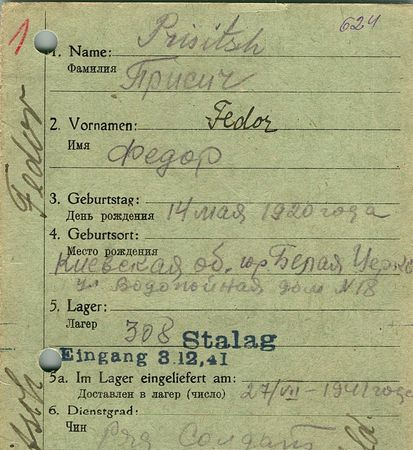 1
624
1. Name: Prisitsh
Фамилия Присич
2. Vornamen: Fedor
Имя Федор
3. Geburtstag:
День рождения 14 мая 1920 года
4. Geburtsort:
Место рождения
Киевская об. гор Белая Церк
ул Водопойная дом № 18
5. Lager:
Лагер 308 Stalag
Eingang 3.12.41
5a. Im Lager eingeliefert am:
Доставлен в лагер (число) 27/VII - 1941 года
6. Dienstgrad:
Чин Ряд Солдат
Fedor